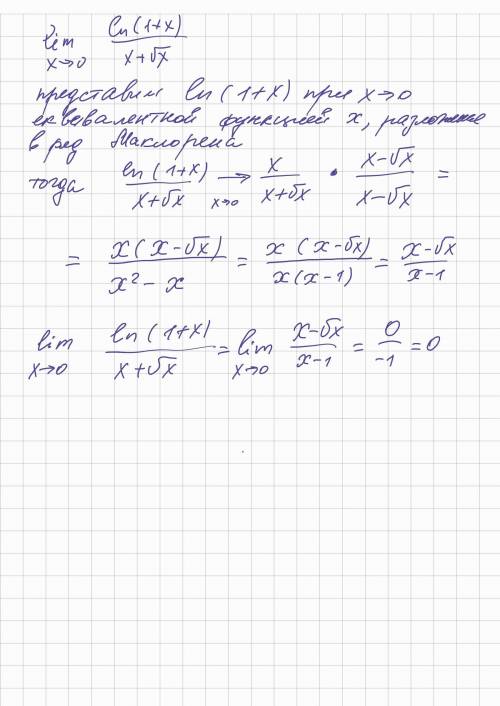 lim ln(1+x) / x+√x
x→0
представим ln(1+x) при x→0
еквевалентной функцией x, разложение
в ряд Маклорена
тогда ln(1+x) / x+√x →x→0 x / x+√x · x-√x / x-√x =
= x(x-√x) / x² - x = x (x-√x) / x(x-1) = x-√x / x-1
lim x→0 ln(1+x) / x+√x = lim x→0 x-√x / x-1 = 0 / -1 = 0